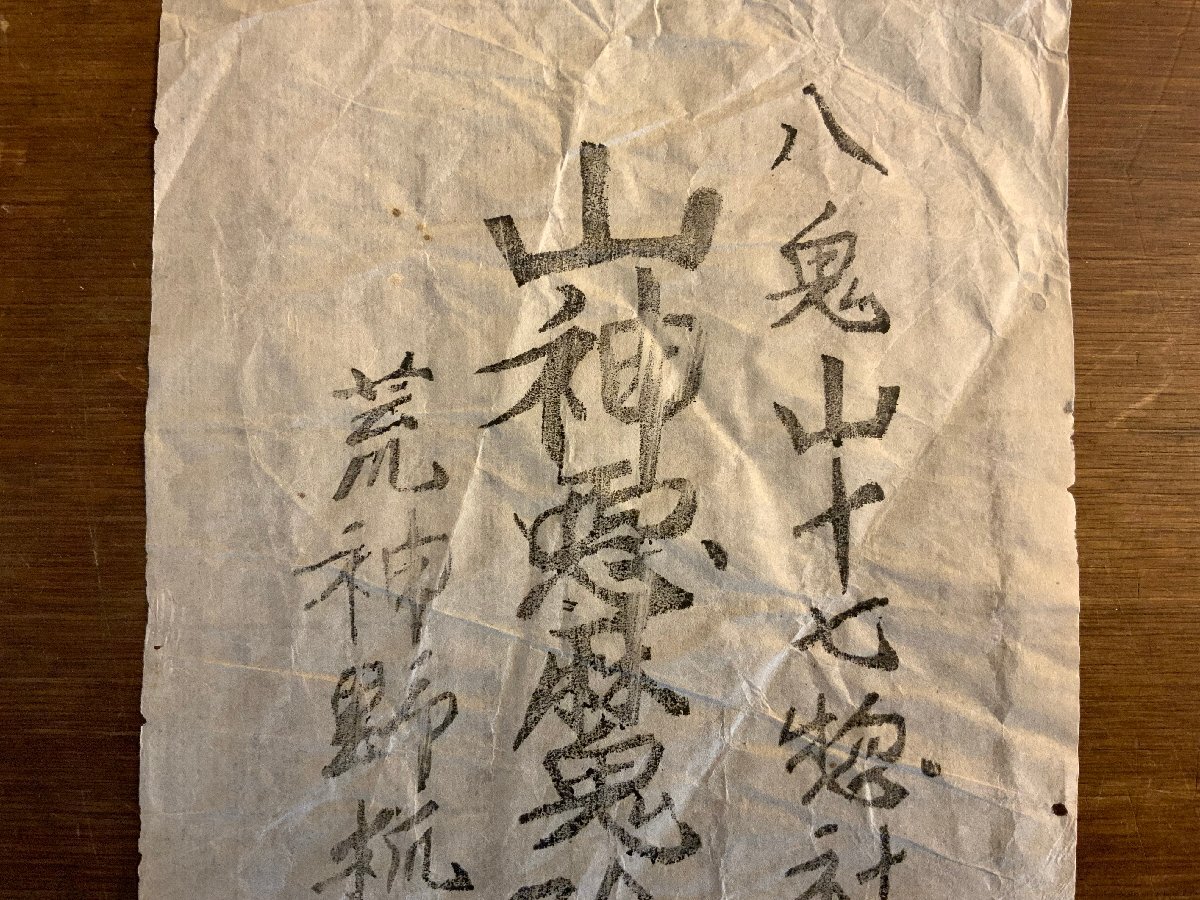 八鬼山十七惣社
山神悪魔
荒神野狐